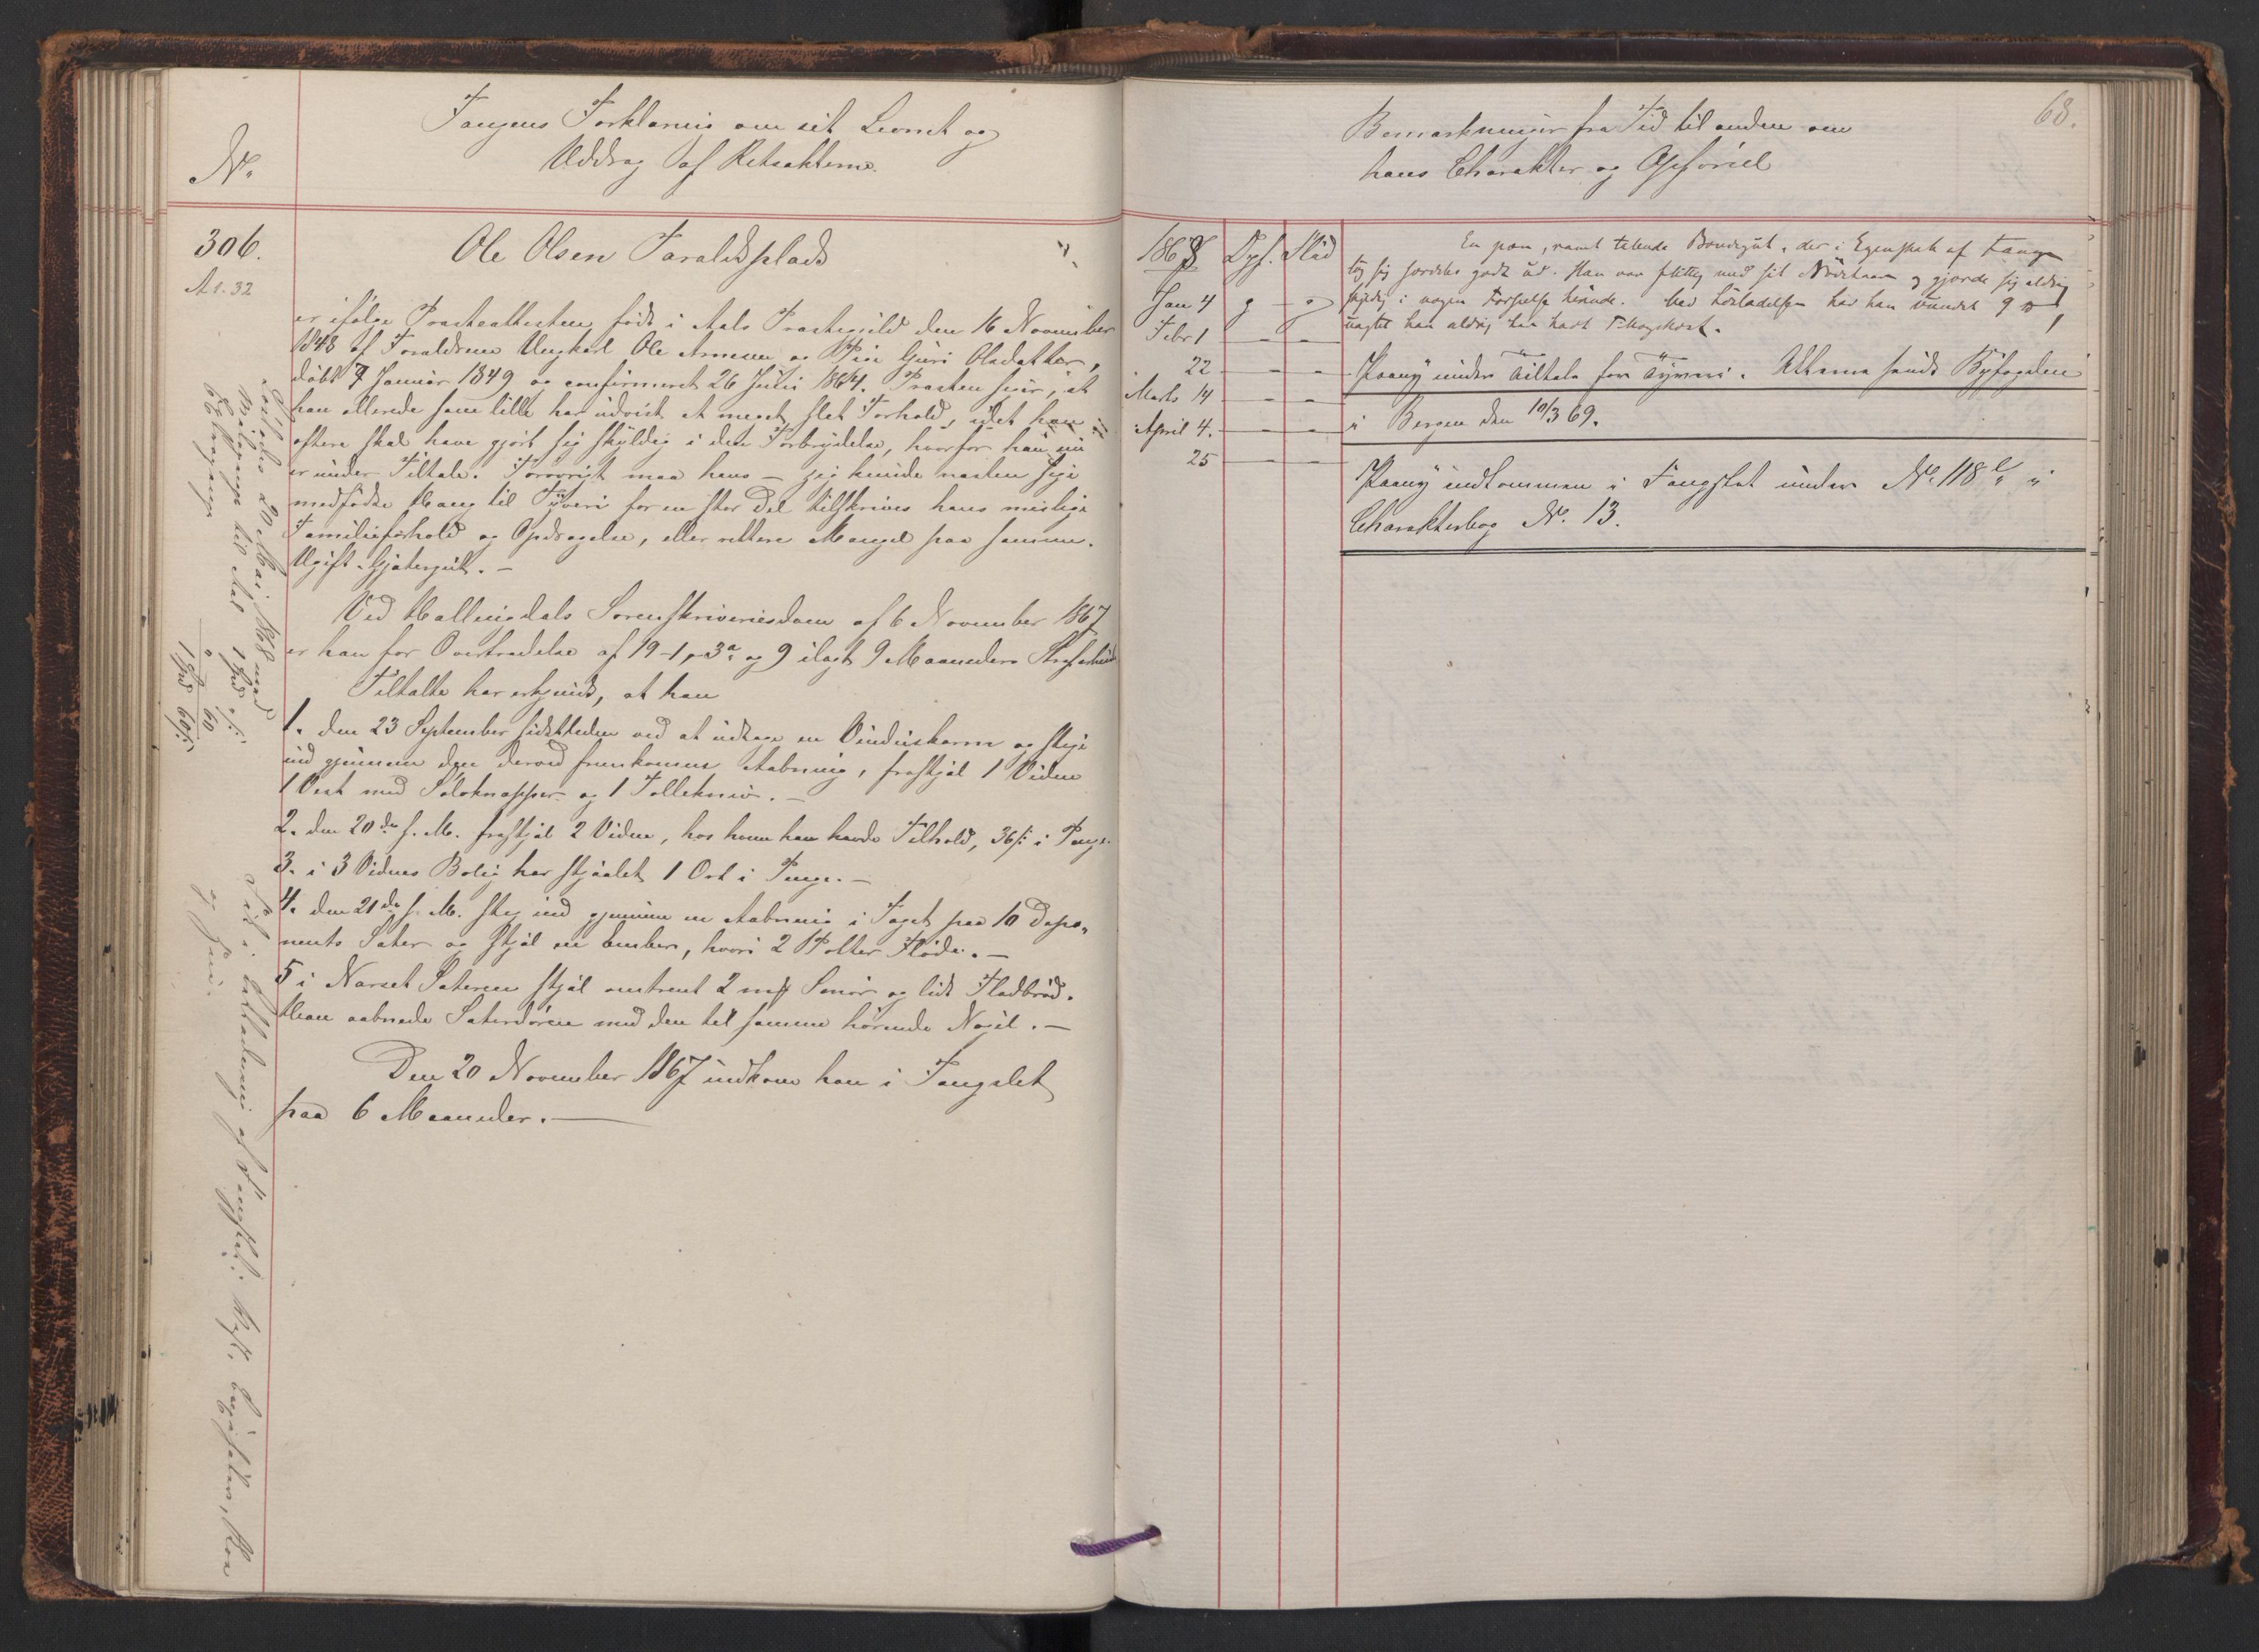 No.
Fangens Forklaring om sit Levnet og
Uddrag af Retsakterne.
306.
A 1. 32
Ole Olsen Faraldsplads
er ifølge Præsteattesten født i Aals Præstegield den 16 November
1848 af Forældrene Ungkarl Ole Arnesen og Pige Guri Olsdatter,
døbt 7 Januar 1849 og confirmeret 26 Juli 1864. Præsten siger, at
han allerede som lille har udvist et meget slet Forhold, idet han
oftere skal have gjort sig skyldig i den Forbrydelse, hvorfor han nu
er under Tiltale. Forøvrigt maa hans – jeg kunde næsten sige
medfødte Hang til Tyveri for en stor Del tilskrives hans mislige
Familieforhold og Opdragelse, eller rettere Mangel paa samme.
Ugift Gjætergut. –
Ved Hallingdals Sorenskriveriesdom af 6 November 1867
er han for Overtrædelse af 19-1, 3a og 9 ilagt 9 Maaneders Strafarbeide
Tiltalte har erkjendt, at han
1. den 23 September sidstleden ved at udtage en Vinduskarm og stige
ind gjennem den derved fremkomne Aabning, frastjal 1 Vidne
1 Vest med Sølvknapper og 1 Tollekniv. –
2. den 20de s. M. frastjal 2 Vidne, hos hvem han havde Tilhold, 36 s i Penge
3. i 3 Vidnes Bolig har stjaalet 1 Ort i Penge. –
4. den 21de s. M. steg ind gjennem en Aabning i Taget paa 10 Depo„
nents Sæter og stjal en Ember, hvori 2 Potter Fløde. –
5 i Narset Sæteren stjal omtrent 2 mk Smør og lidt Fladbrød.
Han aabnede Sæterdøren med den til samme hørende Nøgel. –
Den 20 November 1867 indkom han i Fængslet
paa 6 Maaneder. –
Løslades 20 Mai 1868 med
Reisepenge til Aal 1 Spd
60
1 Spd 60 s
68.
Bemærkninger fra Tid til anden om
hans Charakter og Opførsel
1868 Opf. Flid
Jan 4 g g
Febr 1 – –
22 – –
Marts 14 – –
April 4. – –
25 – –
En pæn, vamt talende Bondegut, der i Egenskab af Fange
tog sig særdeles godt ud. Han var flittig med sit Arbeide og gjorde sig aldrig
skyldig i nogen Forseelse herinde. Ved Løsladelsen har han vundet 9
uagtet han aldrig har havt
Paany under Tiltale for Tyveri. Akterne sendt Byfogden
i Bergen den 10/3 69.
Paany indkommen i Fængslet under No. 118 i
Charakterbog No. 13.